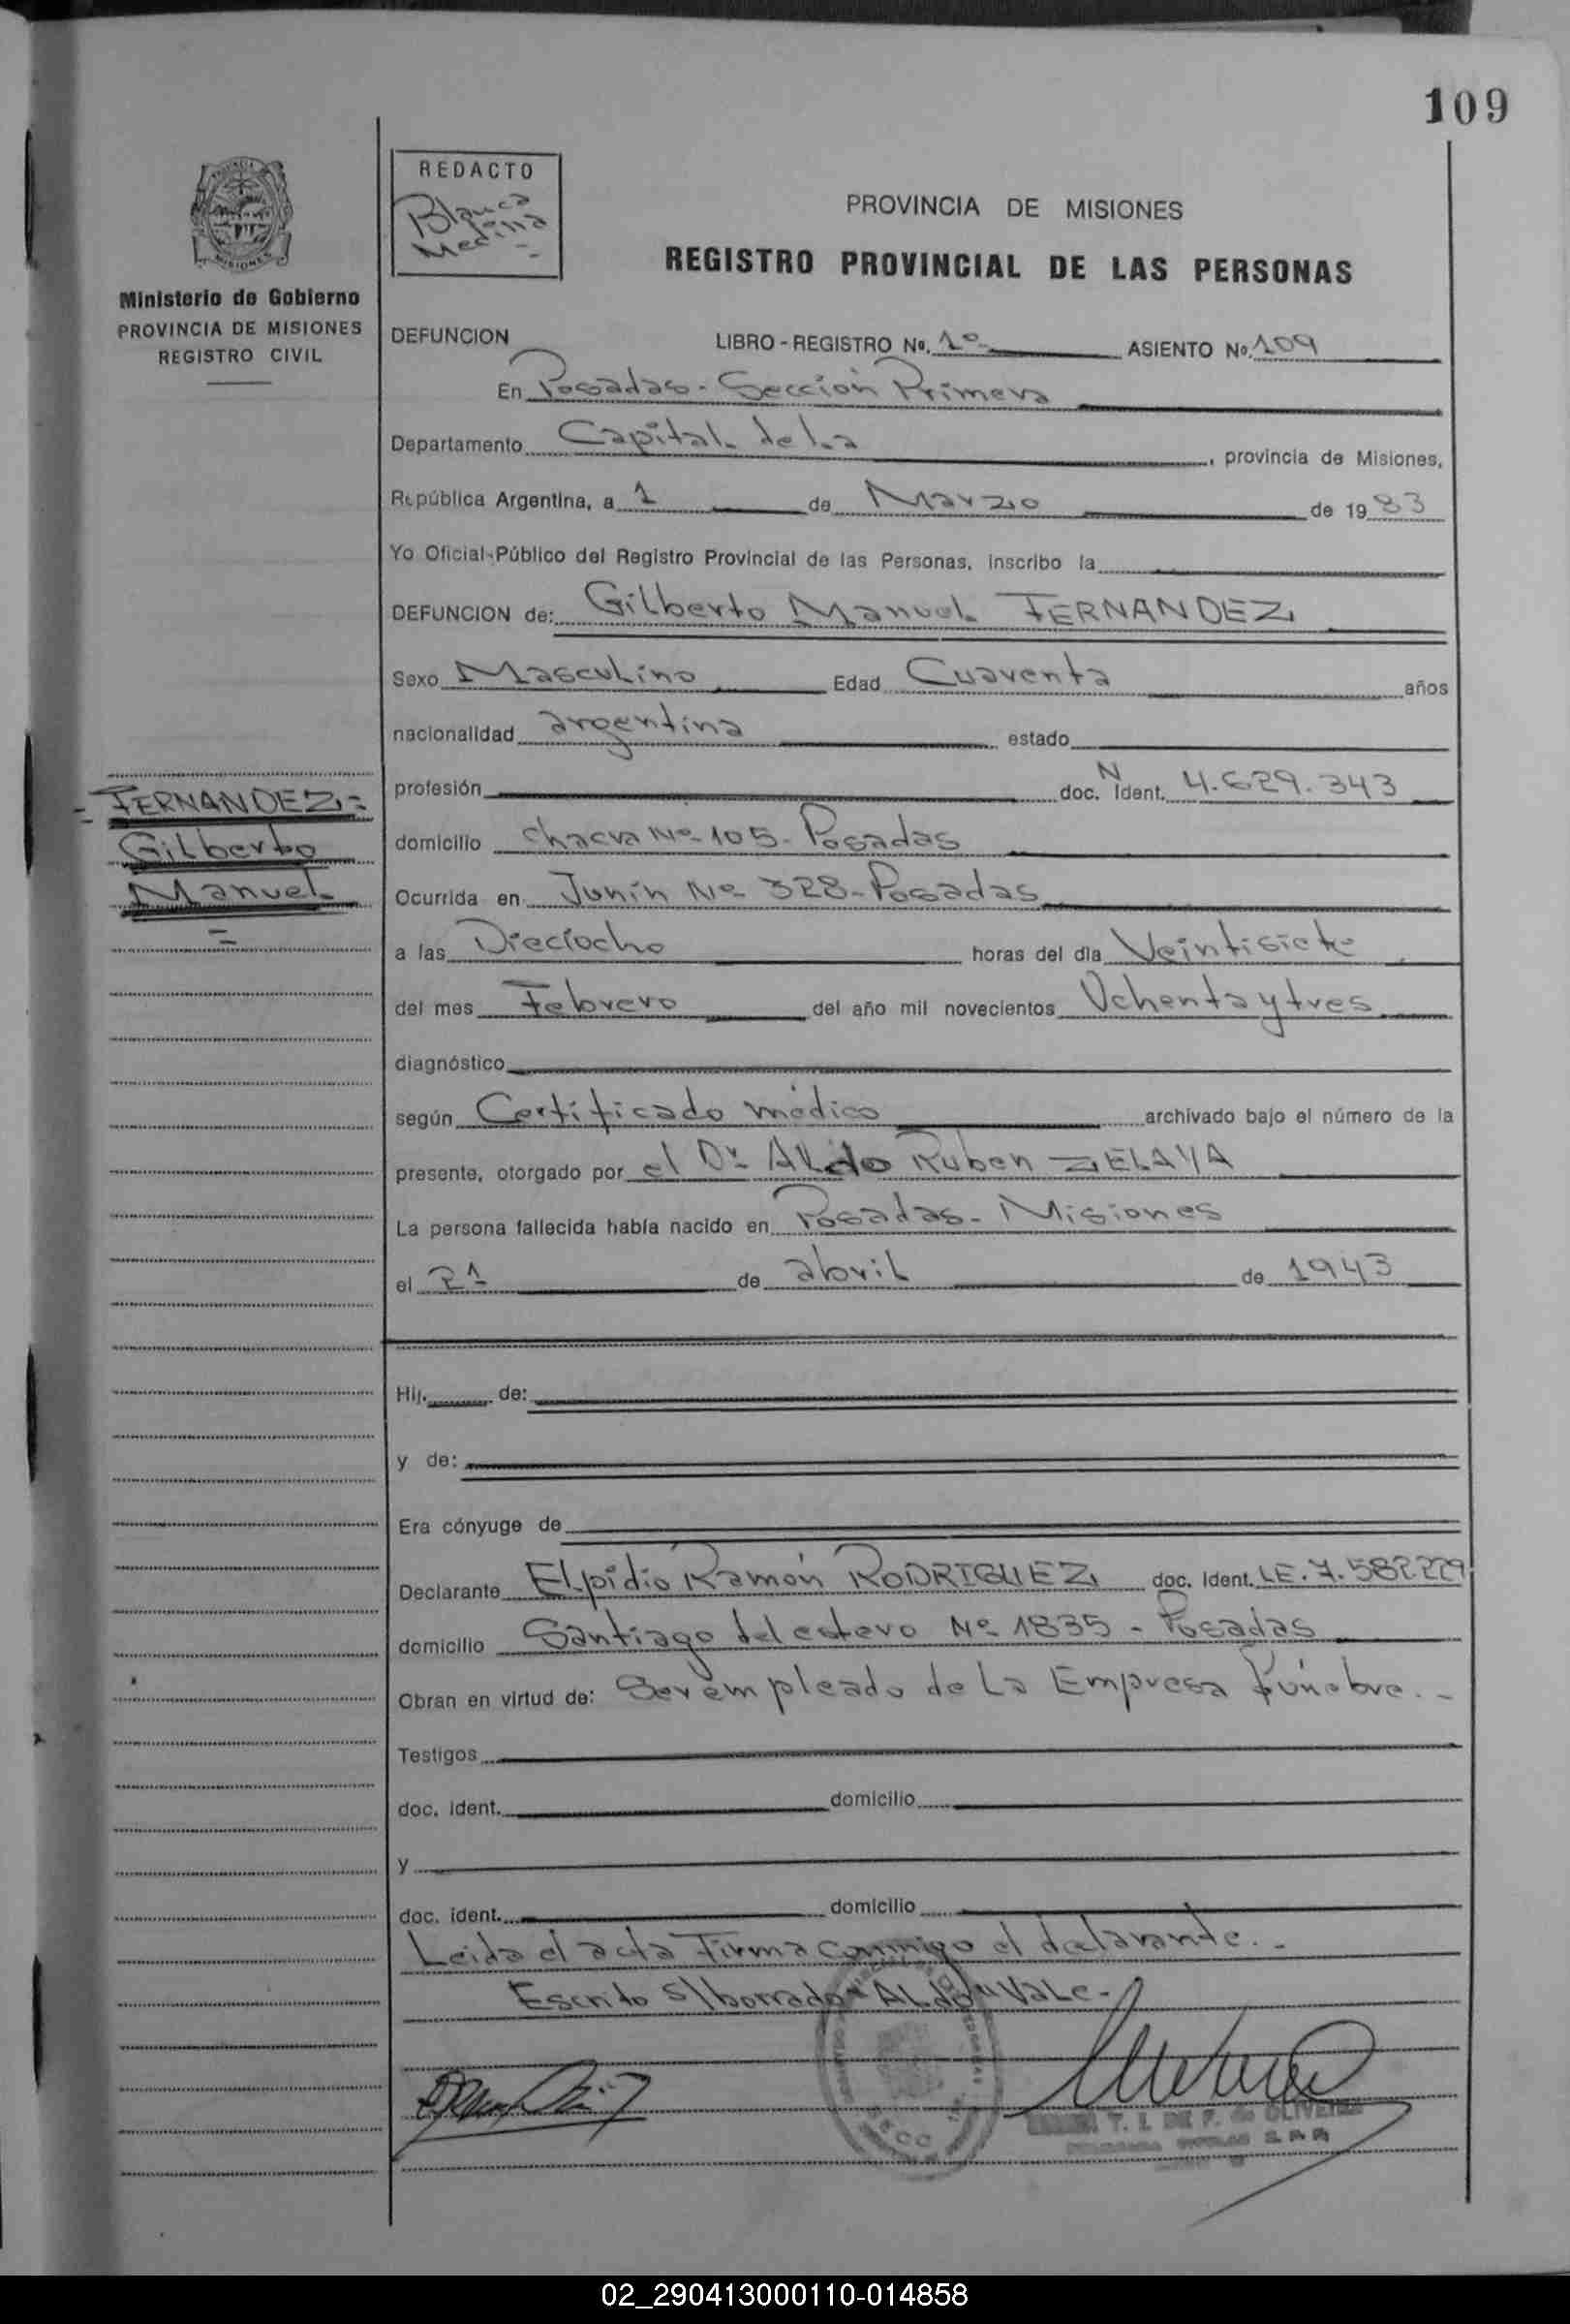 109
REDACTO
Blanca
Medina
PROVINCIA DE MISIONES
REGISTRO PROVINCIAL DE LAS PERSONAS
Ministerio de Gobierno
PROVINCIA DE MISIONES
REGISTRO CIVIL
DEFUNCION LIBRO - REGISTRO Nº. 1º ASIENTO Nº. 109
En Posadas - Sección Primera
Departamento Capital de la , provincia de Misiones,
República Argentina, a 1 de Marzo de 1983
Yo Oficial Público del Registro Provincial de las Personas, inscribo la
DEFUNCION de: Gilberto Manuel FERNANDEZ
Sexo Masculino Edad Cuarenta años
nacionalidad argentina estado
profesión doc. Ident. N 4.629.343
FERNANDEZ=
Gilberto
Manuel
domicilio chacra Nº 105 - Posadas
Ocurrida en Junín Nº 328 - Posadas
a las Dieciocho horas del día Veintisiete
del mes Febrero del año mil novecientos Ochenta y tres
diagnóstico
según Certificado médico archivado bajo el número de la
presente, otorgado por el Dr. Aldo Ruben ZELAYA
La persona fallecida había nacido en Posadas - Misiones
el 21 de abril de 1943
Hij. de:
y de:
Era cónyuge de
Declarante Elpidio Ramón RODRIGUEZ doc. Ident. LE. 7.582.229
domicilio Santiago del estero Nº 1835 - Posadas
Obran en virtud de: Ser empleado de la Empresa fúnebre.-
Testigos
doc. Ident. domicilio
y
doc. ident. domicilio
Leida el acta firma conmigo el declarante.-
Escrito s/borrado "Aldo" Vale-
T. I. DE F. de OLIVEIRA
02_290413000110-014858